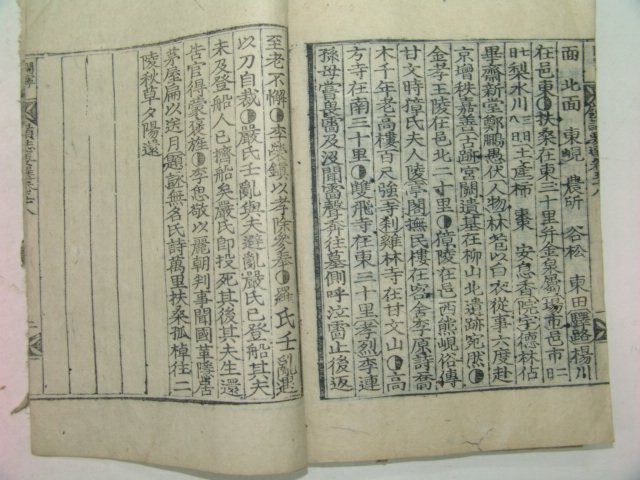 面 北面 東峴 農所 谷松 東田驛路楊川
在邑東◐扶桑在東三十里幷金泉屬場市邑市二日
七梨水川三八日土産柿 棗 安息香院宇德林佔
畢齋新堂鄭鵬愚伏人物林芸以白衣從事六度赴
京增秩嘉善古跡宮闕遺墓在柳山北遺跡宛然◐
金孝王陵在邑北二十里◐獐陵在邑西熊峴俗傳
甘文時獐氏夫人陵亭閣撫民樓在客舍李原詩喬
木千年老高樓百尺強寺刹雞林寺在甘文山◐高
方寺在南三十里◐雙飛寺在東三十里孝烈李連
孫母嘗獸醫及沒聞雷聲奔往墓側呼泣雷止後返
至老不懈◐李榮鎭以孝除參奉◐羅氏壬亂遇
以刀自裁◐嚴氏壬亂與夫避亂嚴氏已登船其夫
未及登船人已擠船矣嚴氏卽投死其後夫生還
告官得蒙旌◐李思敬以麗朝判事聞國革隱居
茅屋扁以送月題詠無名氏詩萬里扶桑孤棹往二
陵秋草夕陽遠